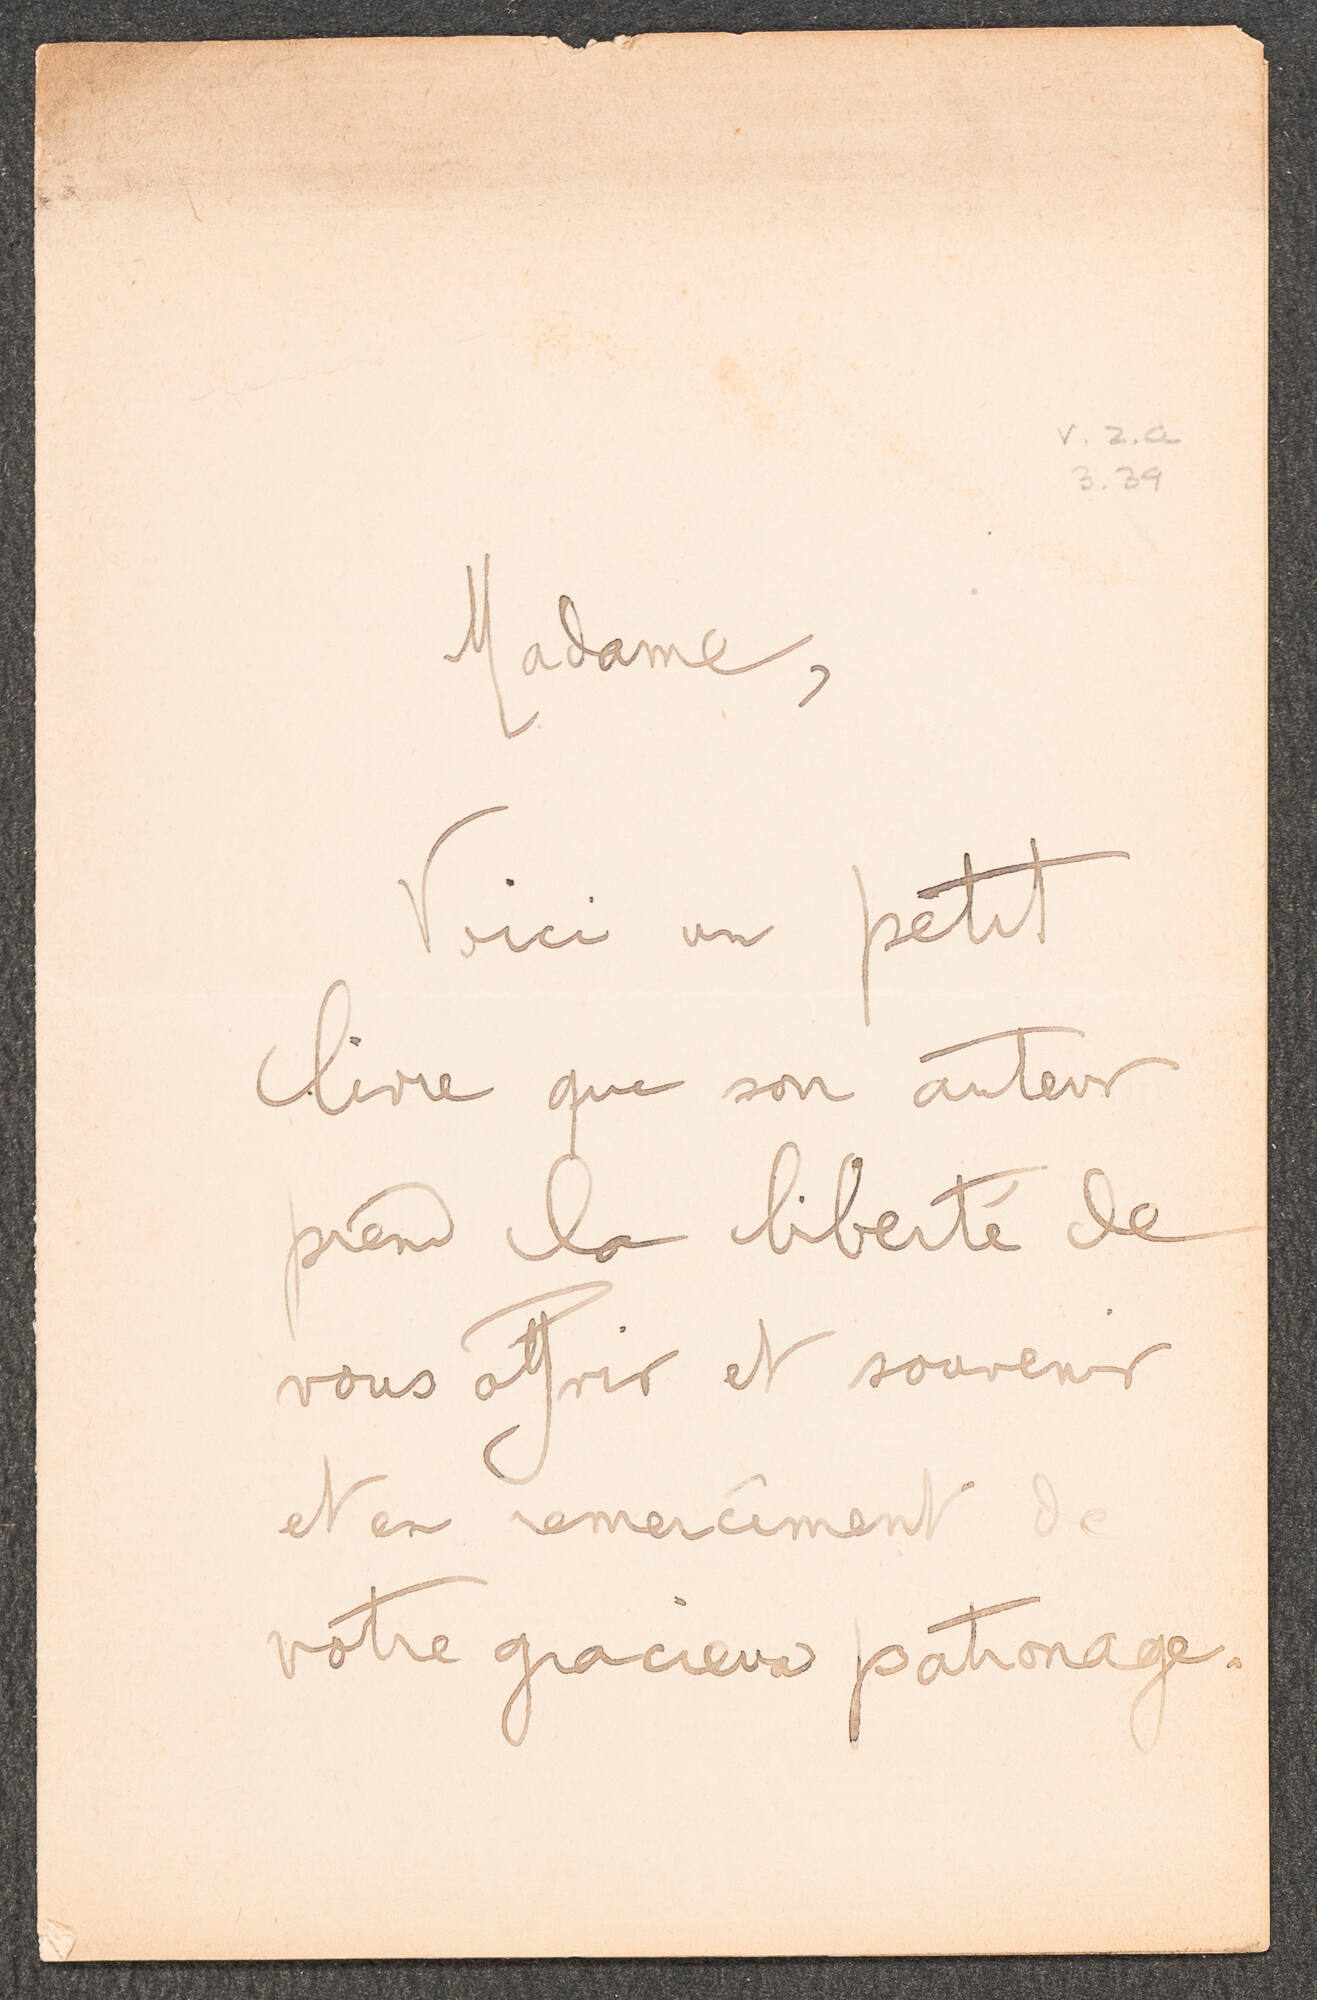 v. 2. a
3. 39
Madame,
Voici un petit
livre que son auteur
prend la liberté de
vous offrir et souvenir
et en remerciment de
votre gracieux patronage.